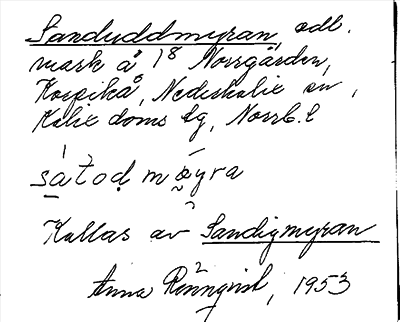 Sandyddmyran, odl.
mark å 1⁸ Norrgården,
Korpikå, Nederkalix sn,
Kalix doms. lg, Norrb. l
satod møyra
Kallas av Sandigmyran
Anna Rönnqvist, 1953